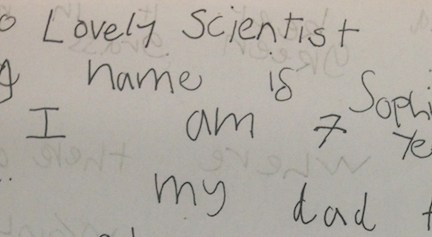 o Lovely Scientist
name is Sophi
I am 7 Ye
my dad